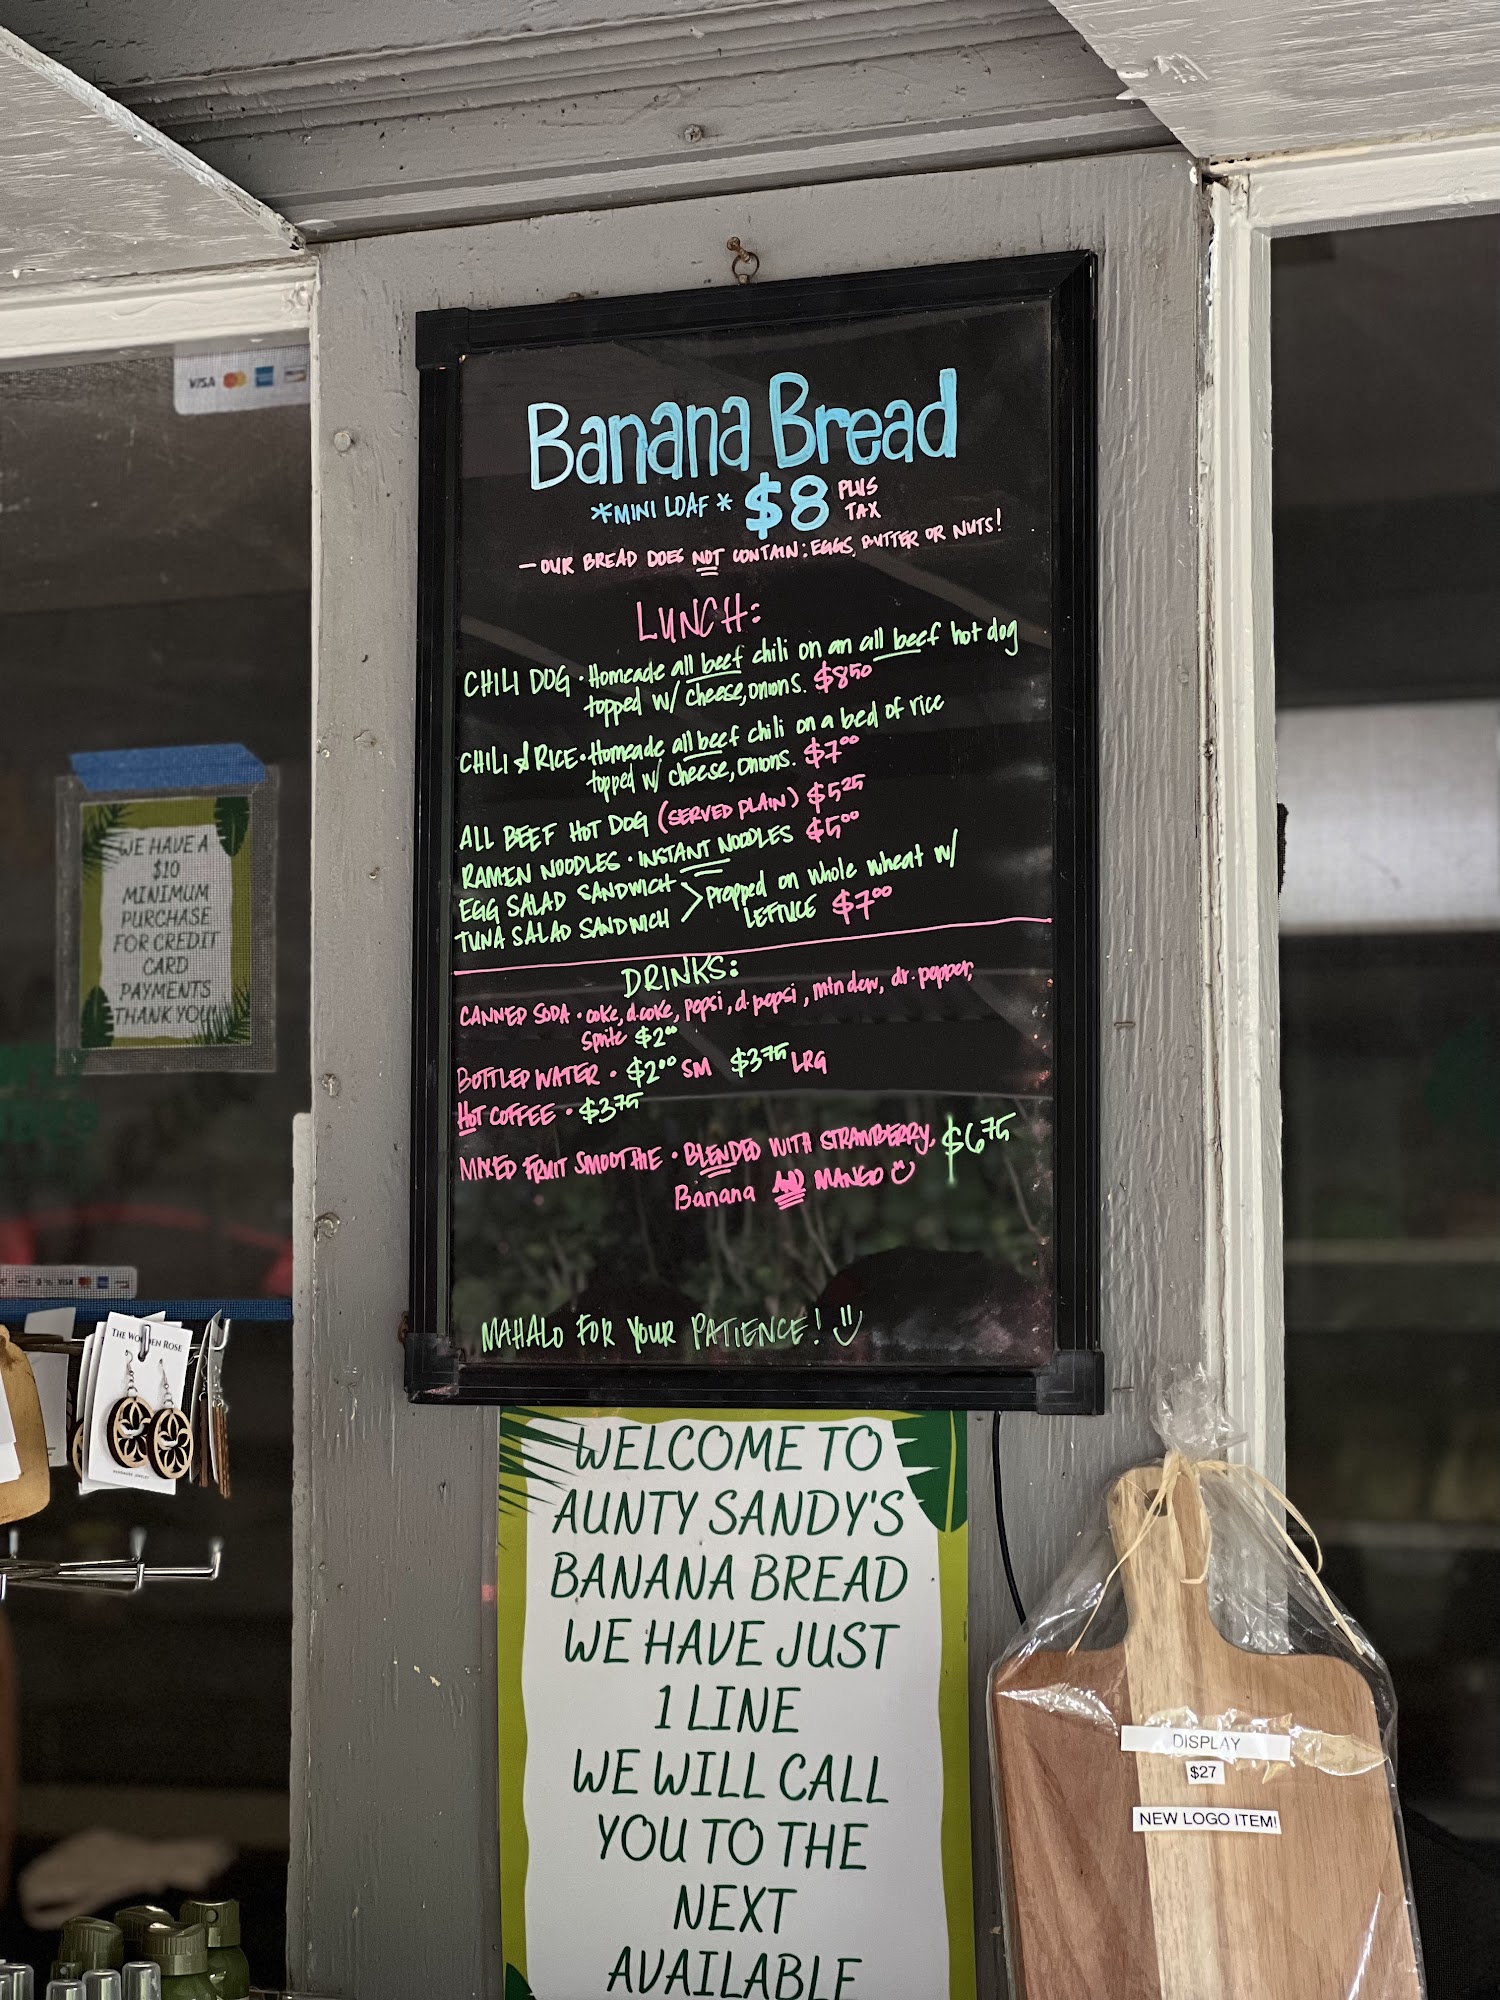 Banana Bread
*MINI LOAF* $8 PLUS TAX
- OUR BREAD DOES NOT CONTAIN: EGGS, BUTTER OR NUTS!
LUNCH:
CHILI DOG · Homeade all beef chili on an all beef hot dog
topped w/ cheese, onions. $8.50
CHILI & RICE · Homeade all beef chili on a bed of rice
topped w/ cheese, onions. $7.00
ALL BEEF HOT DOG (SERVED PLAIN) $5.25
RAMEN NOODLES · INSTANT NOODLES $5.00
EGG SALAD SANDWICH
TUNA SALAD SANDWICH > Prepped on whole wheat w/
LETTUCE $7.00
DRINKS:
CANNED SODA · coke, d.coke, pepsi, d.pepsi, mtn dew, dr. pepper,
sprite $2.00
BOTTLED WATER · $2.00 SM $3.75 LRG
HOT COFFEE · $3.75
MIXED FRUIT SMOOTHIE · BLENDED WITH STRAWBERRY, $6.75
Banana AND MANGO
MAHALO FOR YOUR PATIENCE!
WELCOME TO
AUNTY SANDY'S
BANANA BREAD
WE HAVE JUST
1 LINE
WE WILL CALL
YOU TO THE
NEXT
AVAILABLE
VISA
WE HAVE A
$10
MINIMUM
PURCHASE
FOR CREDIT
CARD
PAYMENTS
THANK YOU!
THE WOODEN ROSE
DISPLAY
$27
NEW LOGO ITEM!